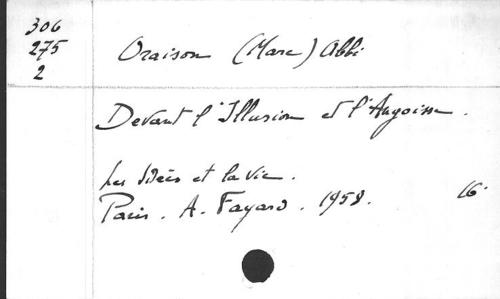 306
275
2
Oraison (Marc) Abbé
Devant l'Illusion et l'Angoisse.
Les Idées et la vie.
Paris. A. Fayard. 1958. 16°